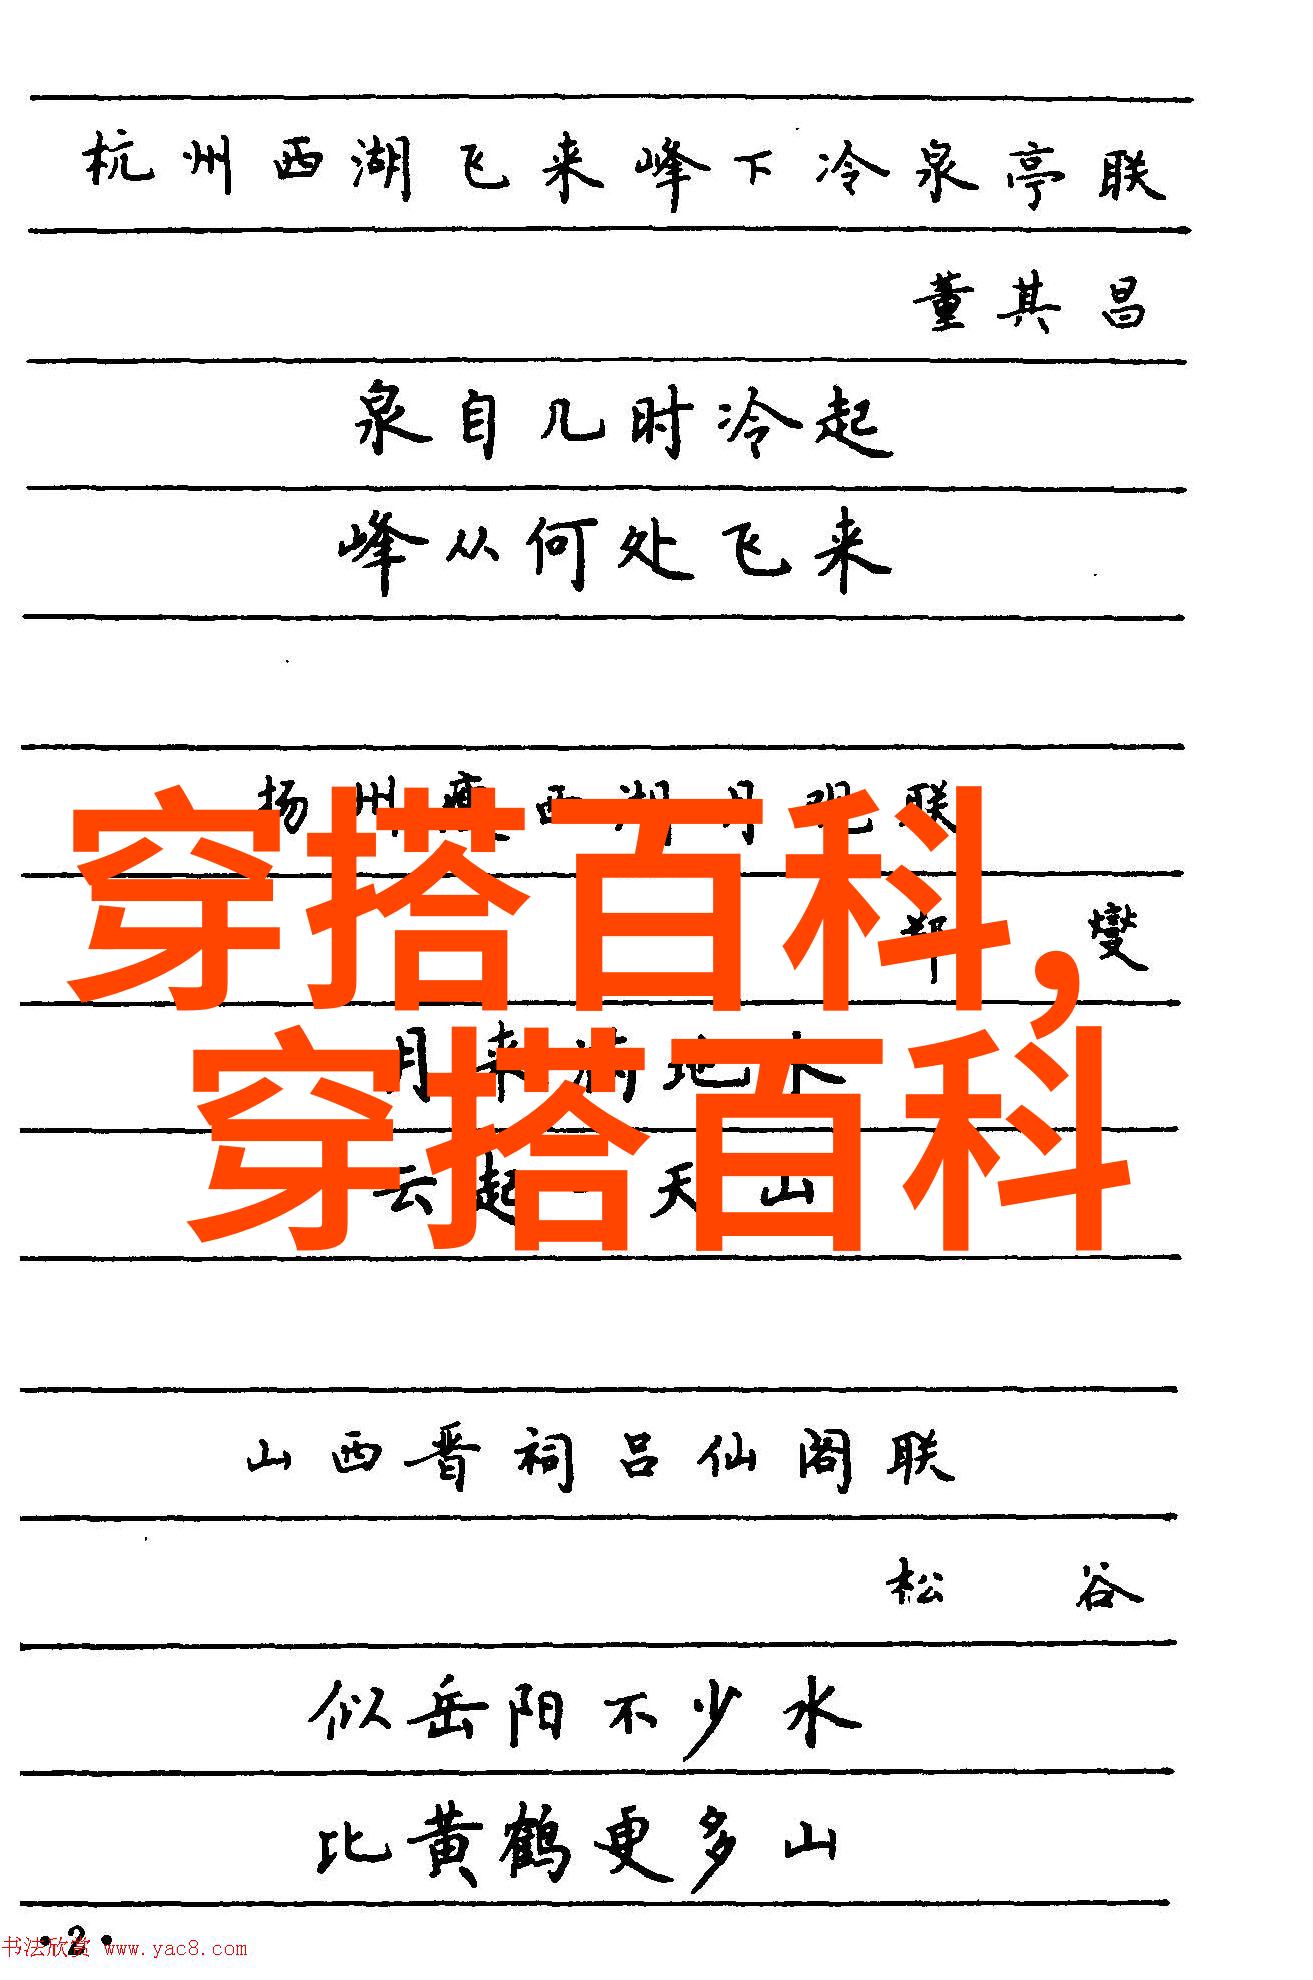 杭州西湖飞来峰下冷泉亭联
董其昌
泉自几时冷起
峰从何处飞来
扬州瘦西湖月观联
郑燮
月来满地水
云起一天山
穿搭百科,
穿搭百科
山西晋祠吕仙阁联
松谷
似岳阳不少水
比黄鹤更多山
·2·
书法欣赏 www.yac8.com